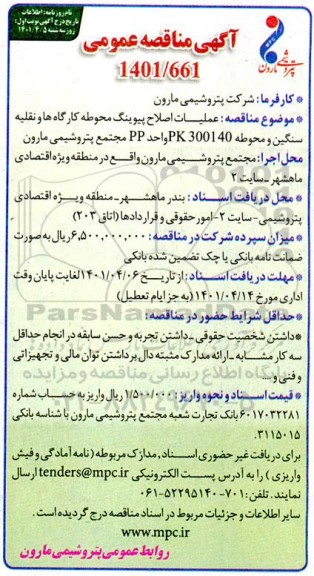 نام روزنامه: اطلاعات
تاریخ درج آگهی نوبت اول:
روز سه شنبه ۱۴۰۱/۴/۵
آگهی مناقصه عمومی
1401/661
پتروشیمی مارون
* کارفرما: شرکت پتروشیمی مارون
* موضوع مناقصه: عملیات اصلاح پیوینگ محوطه کارگاه ها و نقلیه
سنگین و محوطه PK 300140 واحد PP مجتمع پتروشیمی مارون
محل اجرا: مجتمع پتروشیمی مارون واقع در منطقه ویژه اقتصادی
ماهشهر-سایت ۲
* محل دریافت اسناد: بندر ماهشهر-منطقه ویژه اقتصادی
پتروشیمی-سایت ۲-امور حقوقی و قراردادها (اتاق ۲۰۳)
* میزان سپرده شرکت در مناقصه: ۶,۵۰۰,۰۰۰,۰۰۰ ریال به صورت
ضمانت نامه بانکی یا چک تضمین شده بانکی
* مهلت دریافت اسناد: از تاریخ ۱۴۰۱/۰۴/۰۶ لغایت پایان وقت
اداری مورخ ۱۴۰۱/۰۴/۱۴ (به جز ایام تعطیل)
* حداقل شرایط حضور در مناقصه:
* داشتن شخصیت حقوقی-داشتن تجربه و حسن سابقه در انجام حداقل
سه کار مشابه-ارائه مدارک مثبته دال بر داشتن توان مالی و تجهیزاتی
و فنی و...
* قیمت اسناد و نحوه واریز: ۱/۵۰۰/۰۰۰ ریال واریز به حساب شماره
۶۰۱۷۰۳۲۲۸۱ بانک تجارت شعبه مجتمع پتروشیمی مارون با شناسه بانکی
۳۱۱۵۰۱۵.
برای دریافت غیر حضوری اسناد، مدارک مربوطه (نامه آمادگی و فیش
واریزی) را به آدرس پست الکترونیکی tenders@mpc.ir ارسال
نمایند. تلفن: ۷۰۱-۰۶۱-۵۲۲۹۵۱۴۰
سایر اطلاعات و جزئیات مربوط در اسناد مناقصه درج گردیده است.
www.mpc.ir
روابط عمومی پتروشیمی مارون